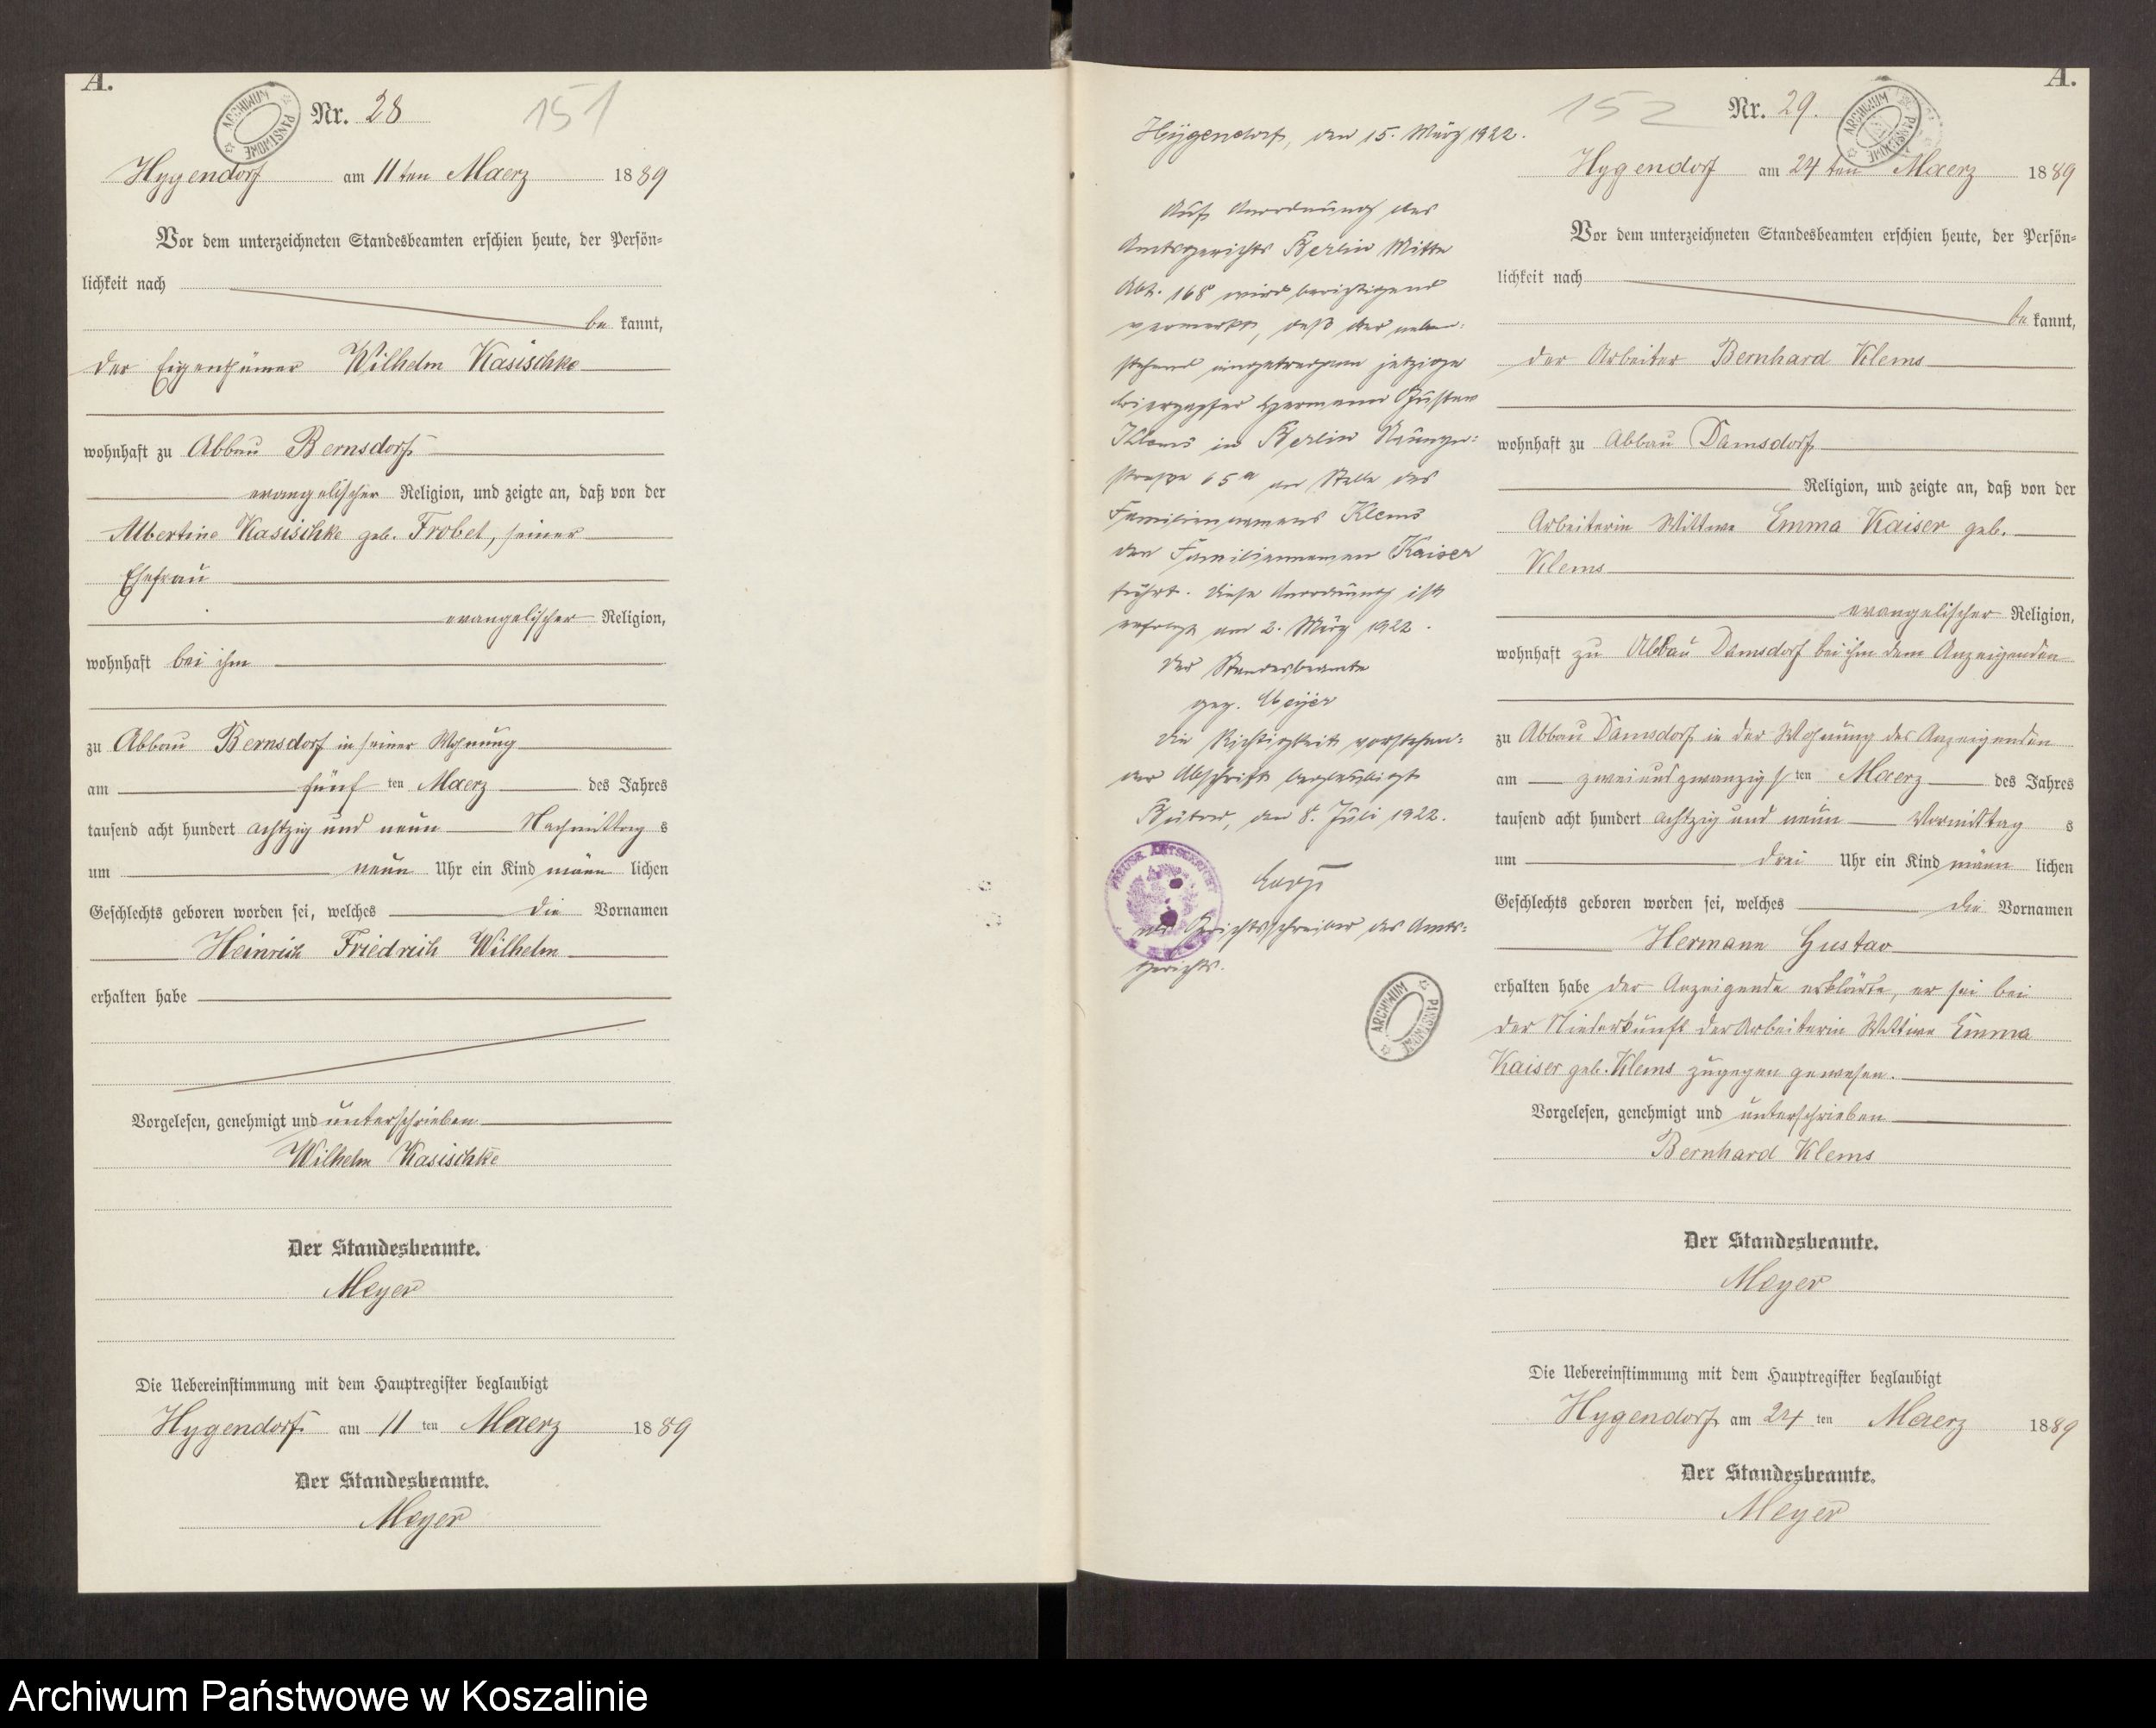 A.
Nr. 28
151
ARCHIWUM PAŃSTWOWE
Hygendorf am 11ten Maerz 1889
Vor dem unterzeichneten Standesbeamten erschien heute, der Persön-
lichkeit nach
be kannt,
der Eigenthümer Wilhelm Kasischke
wohnhaft zu Abbau Bernsdorf
evangelischer Religion, und zeigte an, daß von der
Albertine Kasischke geb. Frobel, seiner
Ehefrau
evangelischer Religion,
wohnhaft bei ihm
zu Abbau Bernsdorf in seiner Wohnung
am fünf ten Maerz des Jahres
tausend acht hundert achtzig und neun Nachmittag s
um neun Uhr ein Kind männ lichen
Geschlechts geboren worden sei, welches die Vornamen
Heinrich Friedrich Wilhelm
erhalten habe
Vorgelesen, genehmigt und unterschrieben
Wilhelm Kasischke
Der Standesbeamte.
Meyer
Die Uebereinstimmung mit dem Hauptregister beglaubigt
Hygendorf am 11 ten Maerz 1889
Der Standesbeamte.
Meyer
Hygendorf, den 15. März 1922.
Auf Anordnung des
Amtsgerichts Berlin Mitte
Abt. 168 wird berichtigend
vermerkt, daß der neben-
stehend eingetragene jetzige
Bierzapfer Hermann Gustav
Klems in Berlin
straße 65a an Stelle des
Familiennamens Klems
den Familiennamen Kaiser
führt. Diese Anordnung ist
erfolgt am 2. März 1922.
Der Standesbeamte
gez. Meyer
Die Richtigkeit vorstehen-
der Abschrift beglaubigt
Bütow, den 8. Juli 1922.
als Gerichtsschreiber des Amts-
gerichts.
PREUSS. AMTSGERICHT
ARCHIWUM PAŃSTWOWE
A.
152
Nr. 29.
ARCHIWUM PAŃSTWOWE
Hygendorf am 24 ten Maerz 1889
Vor dem unterzeichneten Standesbeamten erschien heute, der Persön-
lichkeit nach
be kannt,
der Arbeiter Bernhard Klems
wohnhaft zu Abbau Damsdorf
Religion, und zeigte an, daß von der
Arbeiterin Wittwe Emma Kaiser geb.
Klems
evangelischer Religion,
wohnhaft zu Abbau Damsdorf bei ihm dem Anzeigenden
zu Abbau Damsdorf in der Wohnung des Anzeigenden
am zweiundzwanzigs ten Maerz des Jahres
tausend acht hundert achtzig und neun Vormittag s
um drei Uhr ein Kind männ lichen
Geschlechts geboren worden sei, welches die Vornamen
Hermann Gustav
erhalten habe der Anzeigende erklärte, er sei bei
der Niederkunft der Arbeiterin Wittwe Emma
Kaiser geb. Klems zugegen gewesen.
Vorgelesen, genehmigt und unterschrieben
Bernhard Klems
Der Standesbeamte.
Meyer
Die Uebereinstimmung mit dem Hauptregister beglaubigt
Hygendorf am 24 ten Maerz 1889
Der Standesbeamte.
Meyer
Archiwum Państwowe w Koszalinie